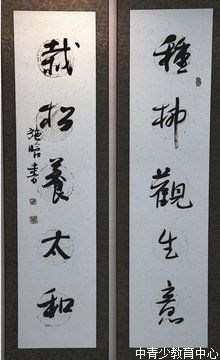 種柳觀生意
栽松養太和
施昭書
中青少教育中心